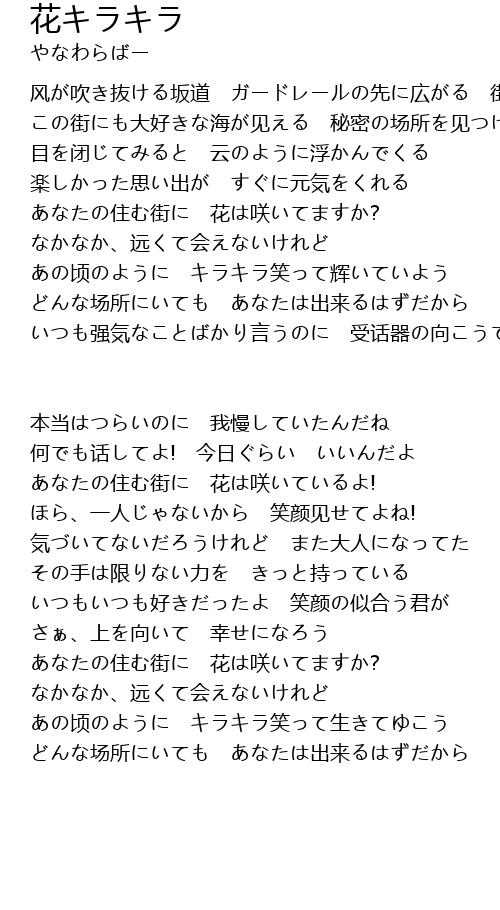 花キラキラ
やなわらばー
风が吹き抜ける坂道　ガードレールの先に広がる
この街にも大好きな海が见える　秘密の场所を见つけ
目を闭じてみると　云のように浮かんでくる
楽しかった思い出が　すぐに元気をくれる
あなたの住む街に　花は咲いてますか?
なかなか、远くて会えないけれど
あの顷のように　キラキラ笑って辉いていよう
どんな场所にいても　あなたは出来るはずだから
いつも强気なことばかり言うのに　受话器の向こうで
本当はつらいのに　我慢していたんだね
何でも话してよ!　今日ぐらい　いいんだよ
あなたの住む街に　花は咲いているよ!
ほら、一人じゃないから　笑颜见せてよね!
気づいてないだろうけれど　また大人になってた
その手は限りない力を　きっと持っている
いつもいつも好きだったよ　笑颜の似合う君が
さぁ、上を向いて　幸せになろう
あなたの住む街に　花は咲いてますか?
なかなか、远くて会えないけれど
あの顷のように　キラキラ笑って生きてゆこう
どんな场所にいても　あなたは出来るはずだから